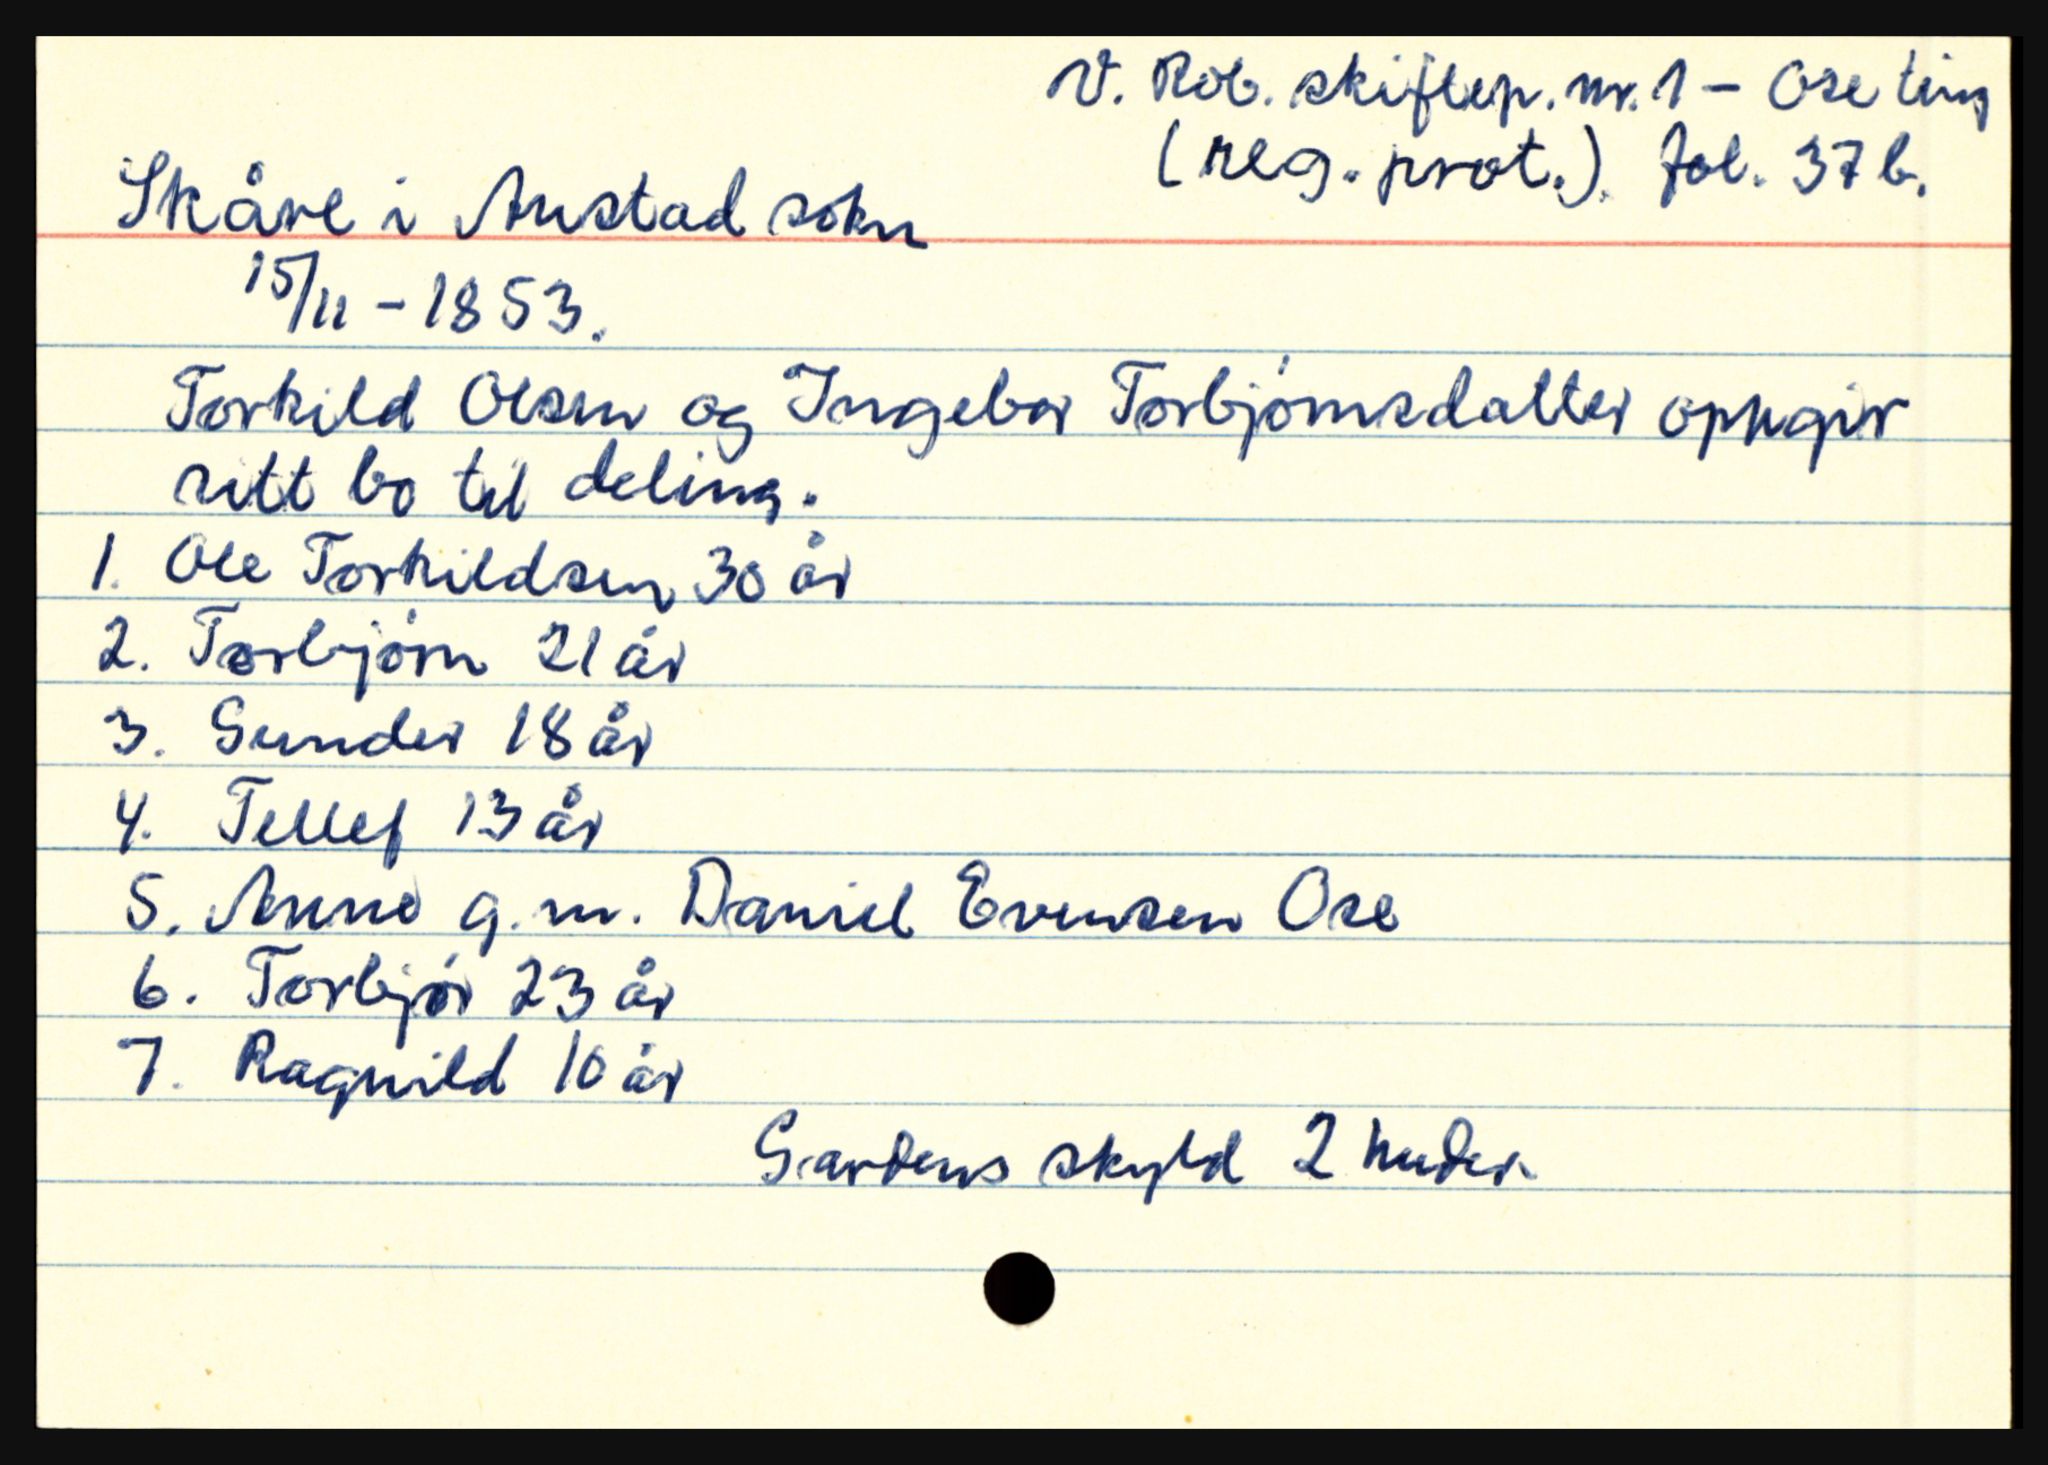 V. Rob. skiftep. nr. 1 - Ose ting
(reg. prot.). fol. 37 b.
Skåre i Austad sokn
15/11 - 1853.
Torkild Olsen og Ingebor Torbjørnsdatter oppgir
sitt bo til deling.
1. Ole Torkildsen 30 år
2. Torbjørn 21 år
3. Gunder 18 år
4. Tellef 13 år
5. Anne g.m. Daniel Evensen Ose
6. Torbjør 23 år
7. Ragnild 10 år
Gardens skyld 2 huder.